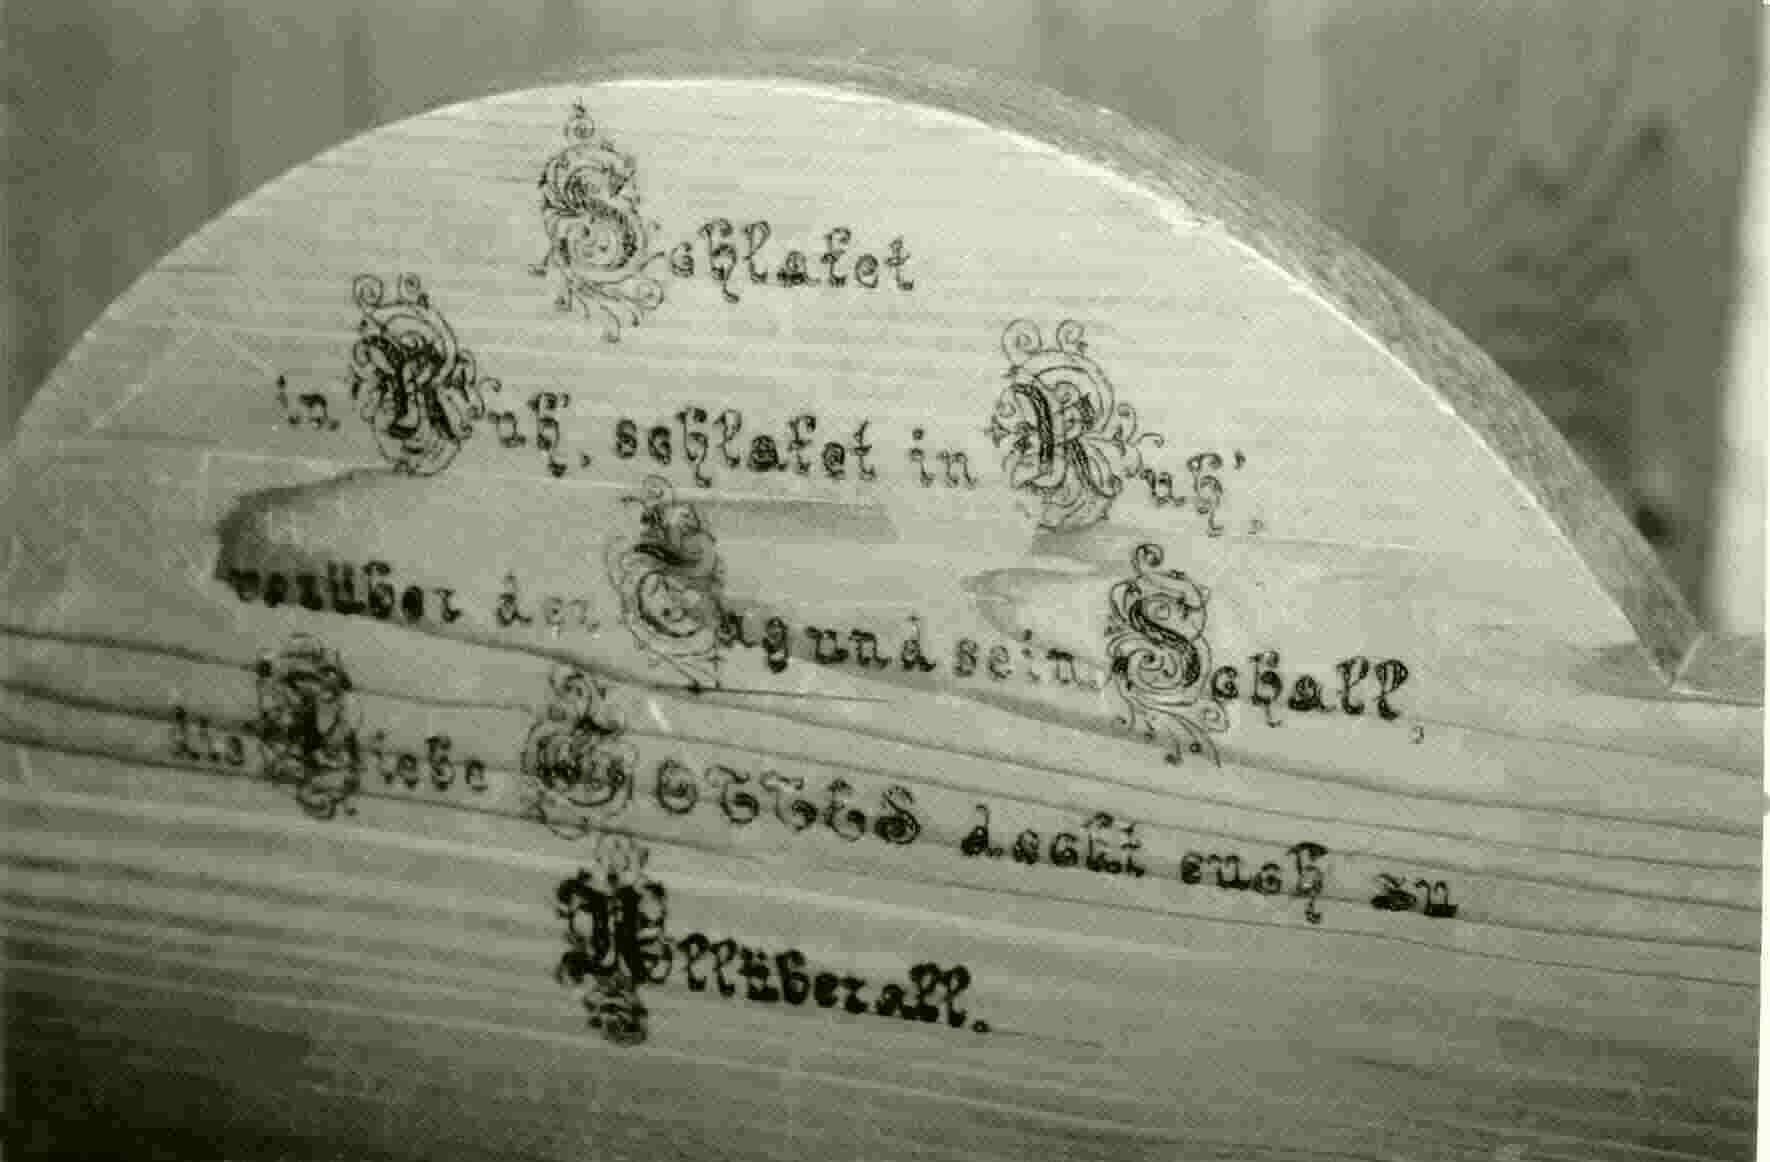 Schlafet
in Ruh', schlafet in Ruh',
vorüber der Tag und sein Schall,
die Liebe GOTTES deckt euch zu
Allüberall.